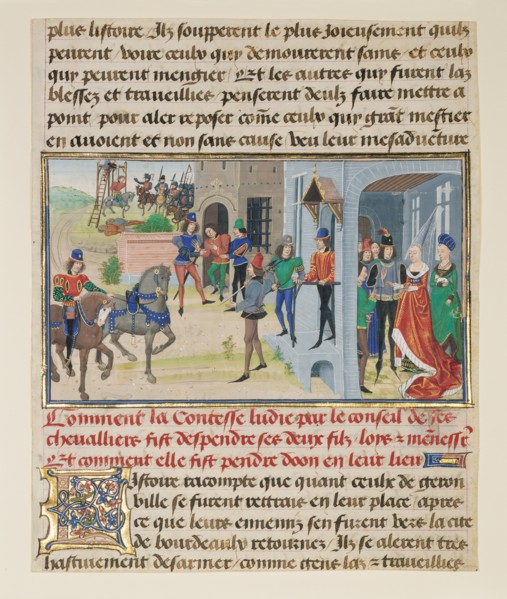 plus listoire Ilz soupperent le plus Joieusement quilz
peurent voire ceulx quy demourerent sains et ceulx
quy peurent mengier Et les autres quy furent las
blessez et travaillies penserent deulx faire mettre a
point pour aler reposer come ceulx quy grat mestier
en avoient et non sans cause veu leur mesaduēture
Comment la Contesse ludie par le conseil de ses
chevalliers fist despendre ses deux filz lors z
Et comment elle fist pendre doon en leur lieu
Istoire racompte que quant ceulx de geron
ville se furent rettrais en leur place apres
ce que leurs ennemis sen furent vers la cite
de bourdeaulx retournez Ilz se alerent tres
hastivement desarmer comme gens las z travaillies